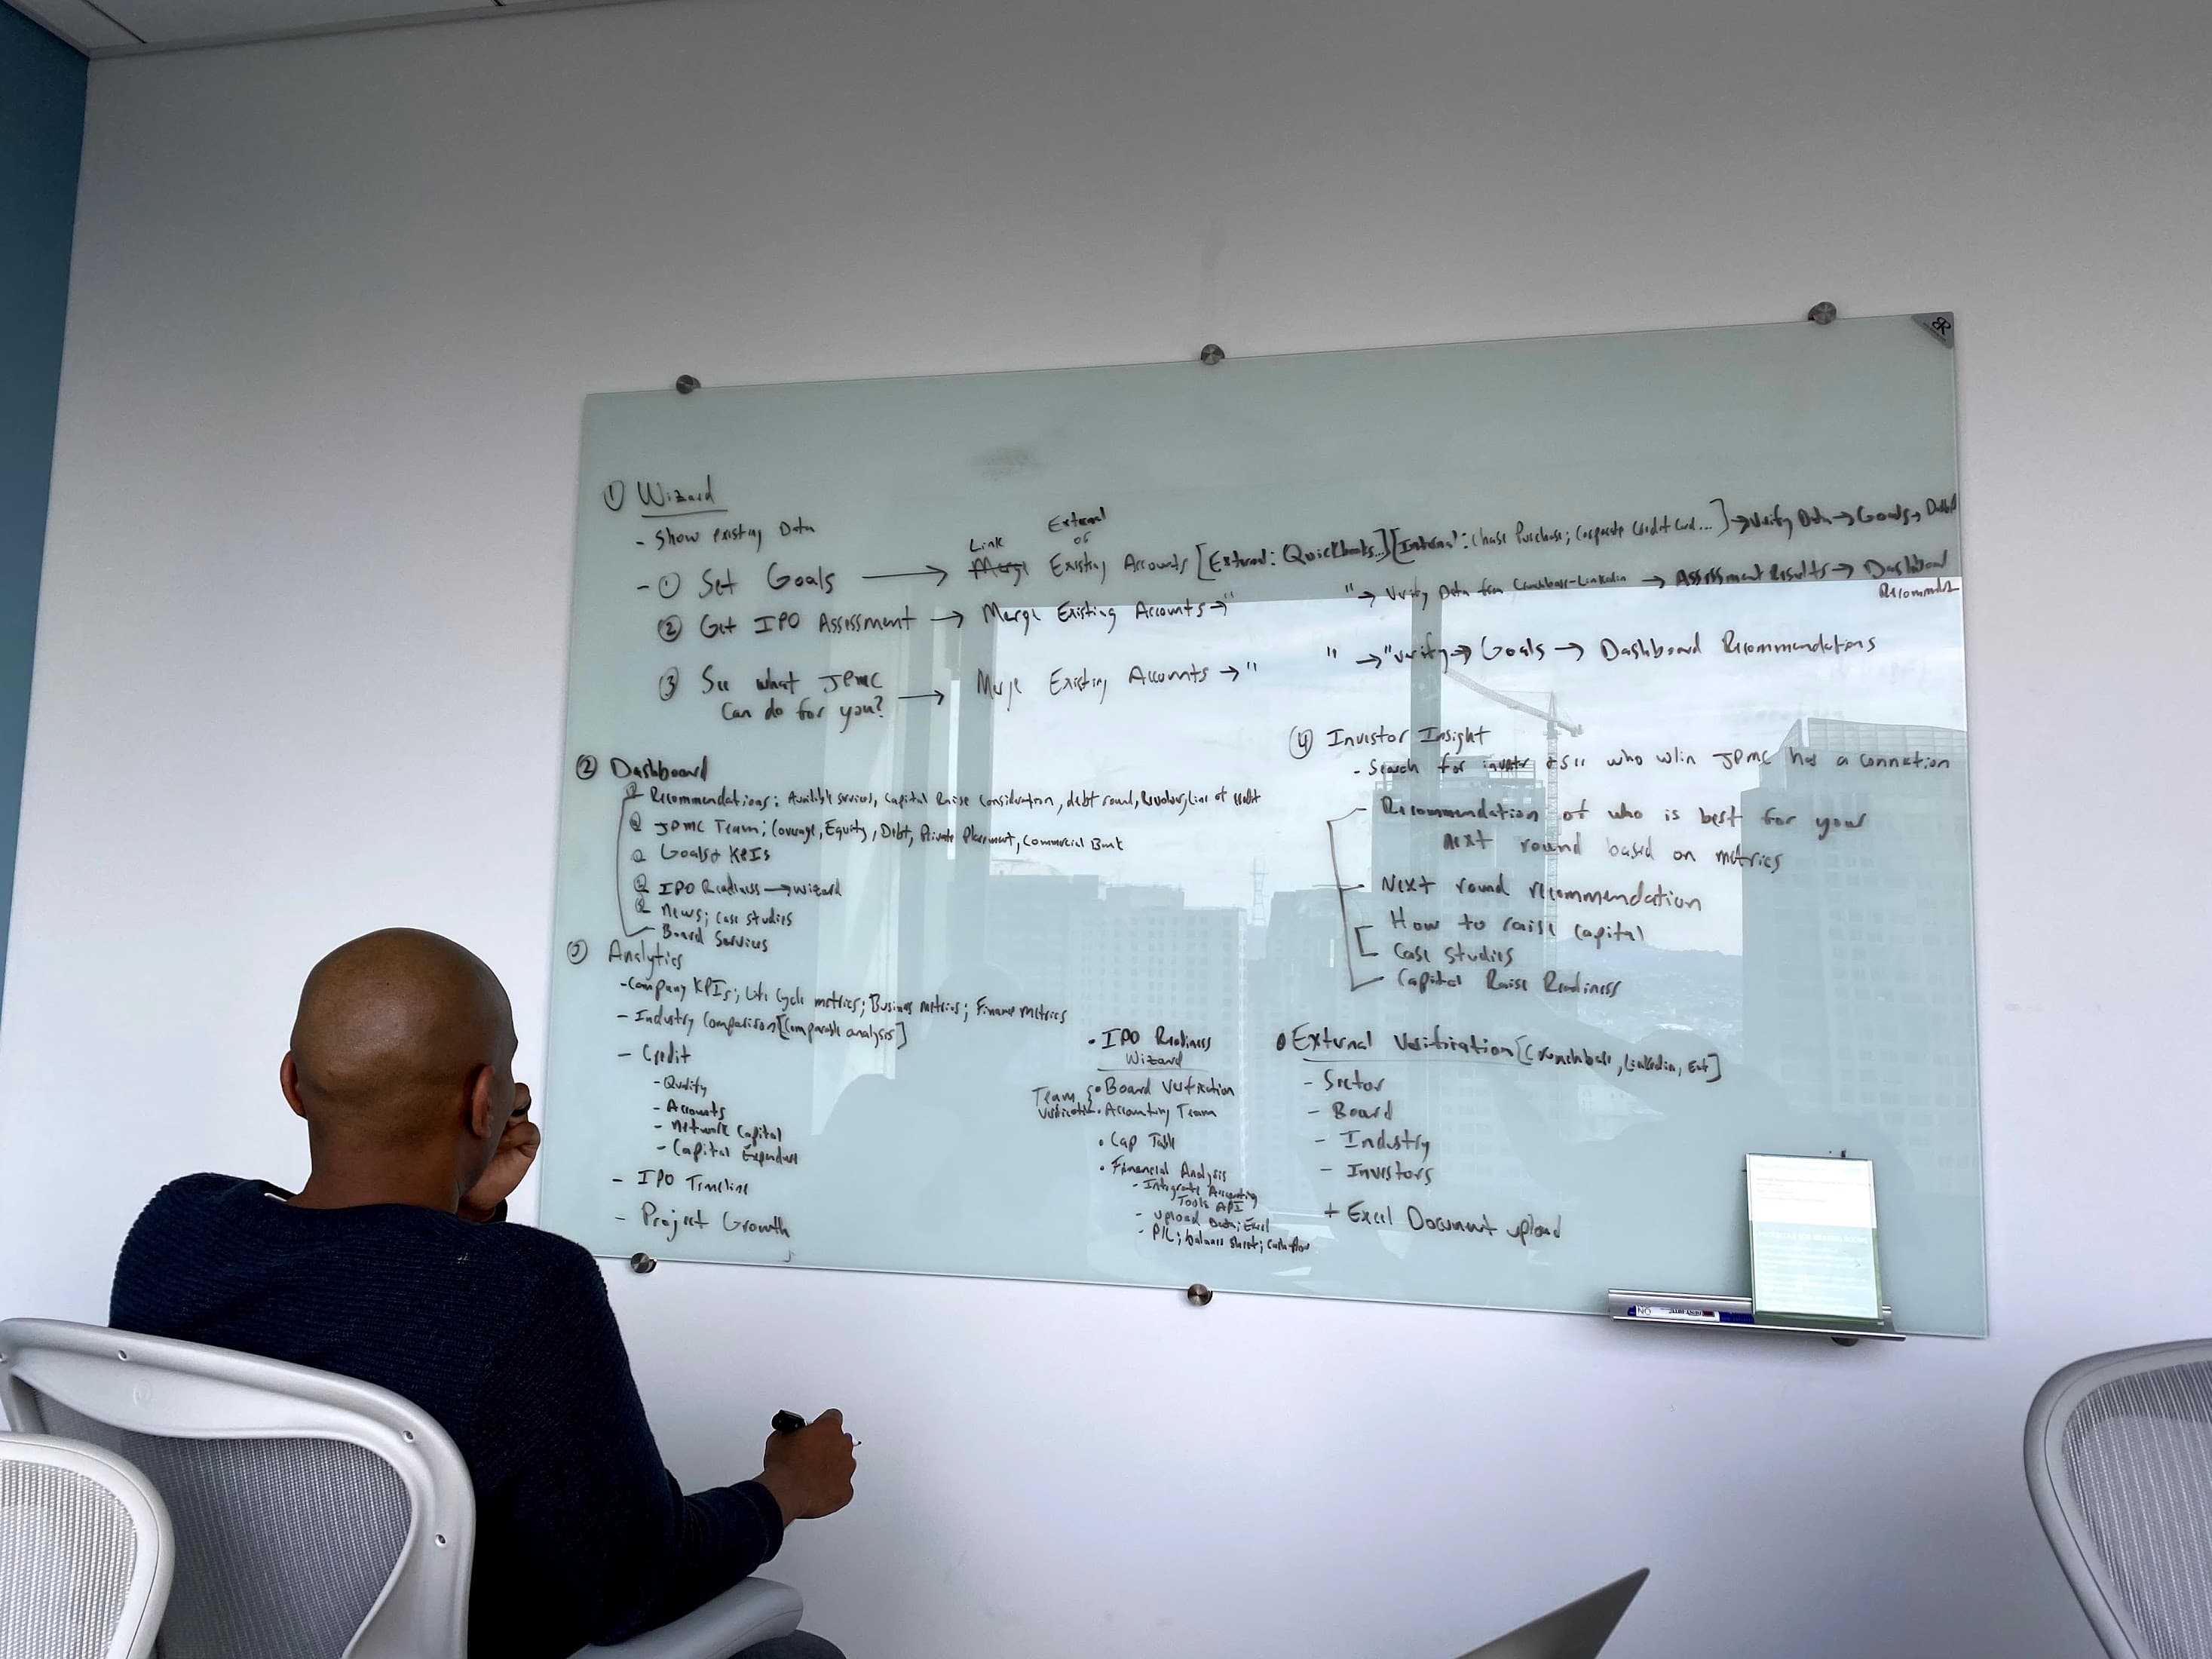 ① Wizard
- Show existing Data
External
Link or
- ① Set Goals → Merge Existing Accounts [External: Quickbooks...][Internal: Chase Purchase; Corporate Credit Card...] → Verify Data → Goals →
② Get IPO Assessment → Merge Existing Accounts → " " → Verify Data from Crunchbase-Linkedin → Assessment Results → Dashboard
③ See what JPMC → Merge Existing Accounts → " " → "verify → Goals → Dashboard Recommendations
can do for you?
② Dashboard
Recommendations: Available services, Capital Raise Consideration, debt round, Revolver, Line of credit
JPMC Team; Coverage, Equity, Debt, Private Placement, Commercial Bank
Goals + KPIs
IPO Readiness → wizard
News; Case studies
Board Services
③ Analytics
- Company KPIs; Life Cycle metrics; Business metrics; Finance metrics
- Industry Comparison [Comparable analysis]
- Credit
- Quality
- Accounts
- Network Capital
- Capital
- IPO Timeline
- Project Growth
④ Investor Insight
- Search for investor + see who w/in JPMC has a
- Recommendation of who is best for your
next round based on metrics
- Next round recommendation
How to raise capital
Case studies
- Capital Raise Readiness
• IPO Readiness
Wizard
Team { • Board Verification
verification • Accounting Team
• Cap Table
• Financial Analysis
- Integrate Accounting
Tools API
- upload Data; Excel
- P/L; balance sheet; cash flow
• External Verification [Crunchbase, Linkedin,
- Sector
- Board
- Industry
- Investors
+ Excel Document upload